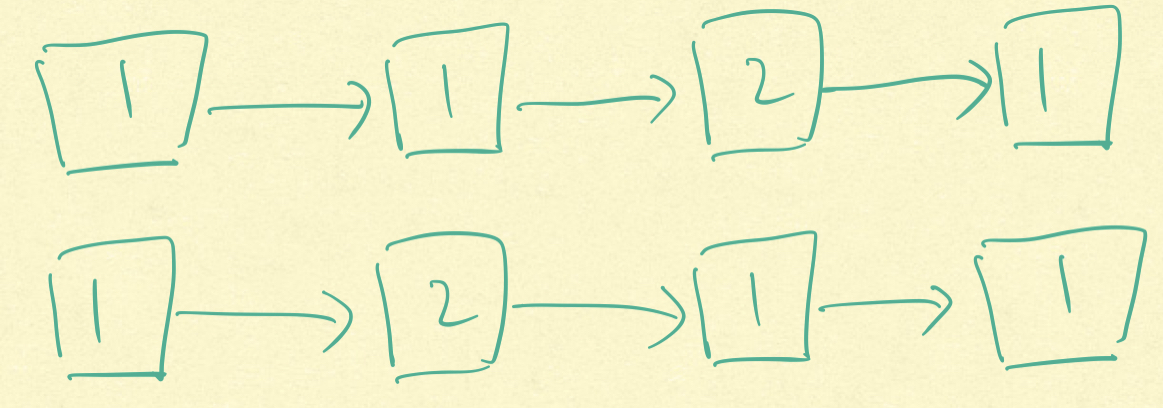 1 1 2 1
1 2 1 1